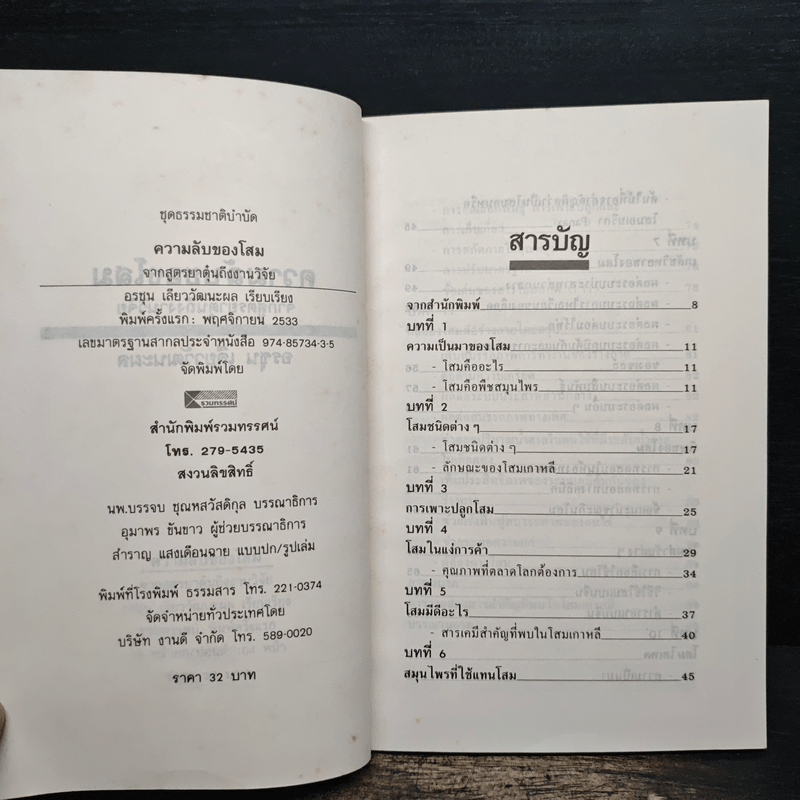 ชุดธรรมชาติบำบัด
ความลับของโสม
จากสูตรยาตุ๋นถึงงานวิจัย
อรชุน เลียววัฒนะผล เรียบเรียง
พิมพ์ครั้งแรก: พฤศจิกายน 2533
เลขมาตรฐานสากลประจำหนังสือ 974-85734-3-5
จัดพิมพ์โดย
รวมทรรศน์
สำนักพิมพ์รวมทรรศน์
โทร. 279-5435
สงวนลิขสิทธิ์
นพ.บรรจบ ชุณหสวัสดิกุล บรรณาธิการ
อุมาพร ขันขาว ผู้ช่วยบรรณาธิการ
สำราญ แสงเดือนฉาย แบบปก/รูปเล่ม
พิมพ์ที่โรงพิมพ์ ธรรมสาร โทร. 221-0374
จัดจำหน่ายทั่วประเทศโดย
บริษัท งานดี จำกัด โทร. 589-0020
ราคา 32 บาท
สารบัญ
จากสำนักพิมพ์ 8
บทที่ 1
ความเป็นมาของโสม 11
- โสมคืออะไร 11
- โสมคือพืชสมุนไพร 11
บทที่ 2
โสมชนิดต่าง ๆ 17
- โสมชนิดต่าง ๆ 17
- ลักษณะของโสมเกาหลี 21
บทที่ 3
การเพาะปลูกโสม 25
บทที่ 4
โสมในแง่การค้า 29
- คุณภาพที่ตลาดโลกต้องการ 34
บทที่ 5
โสมมีดีอะไร 37
- สารเคมีสำคัญที่พบในโสมเกาหลี 40
บทที่ 6
สมุนไพรที่ใช้แทนโสม 45